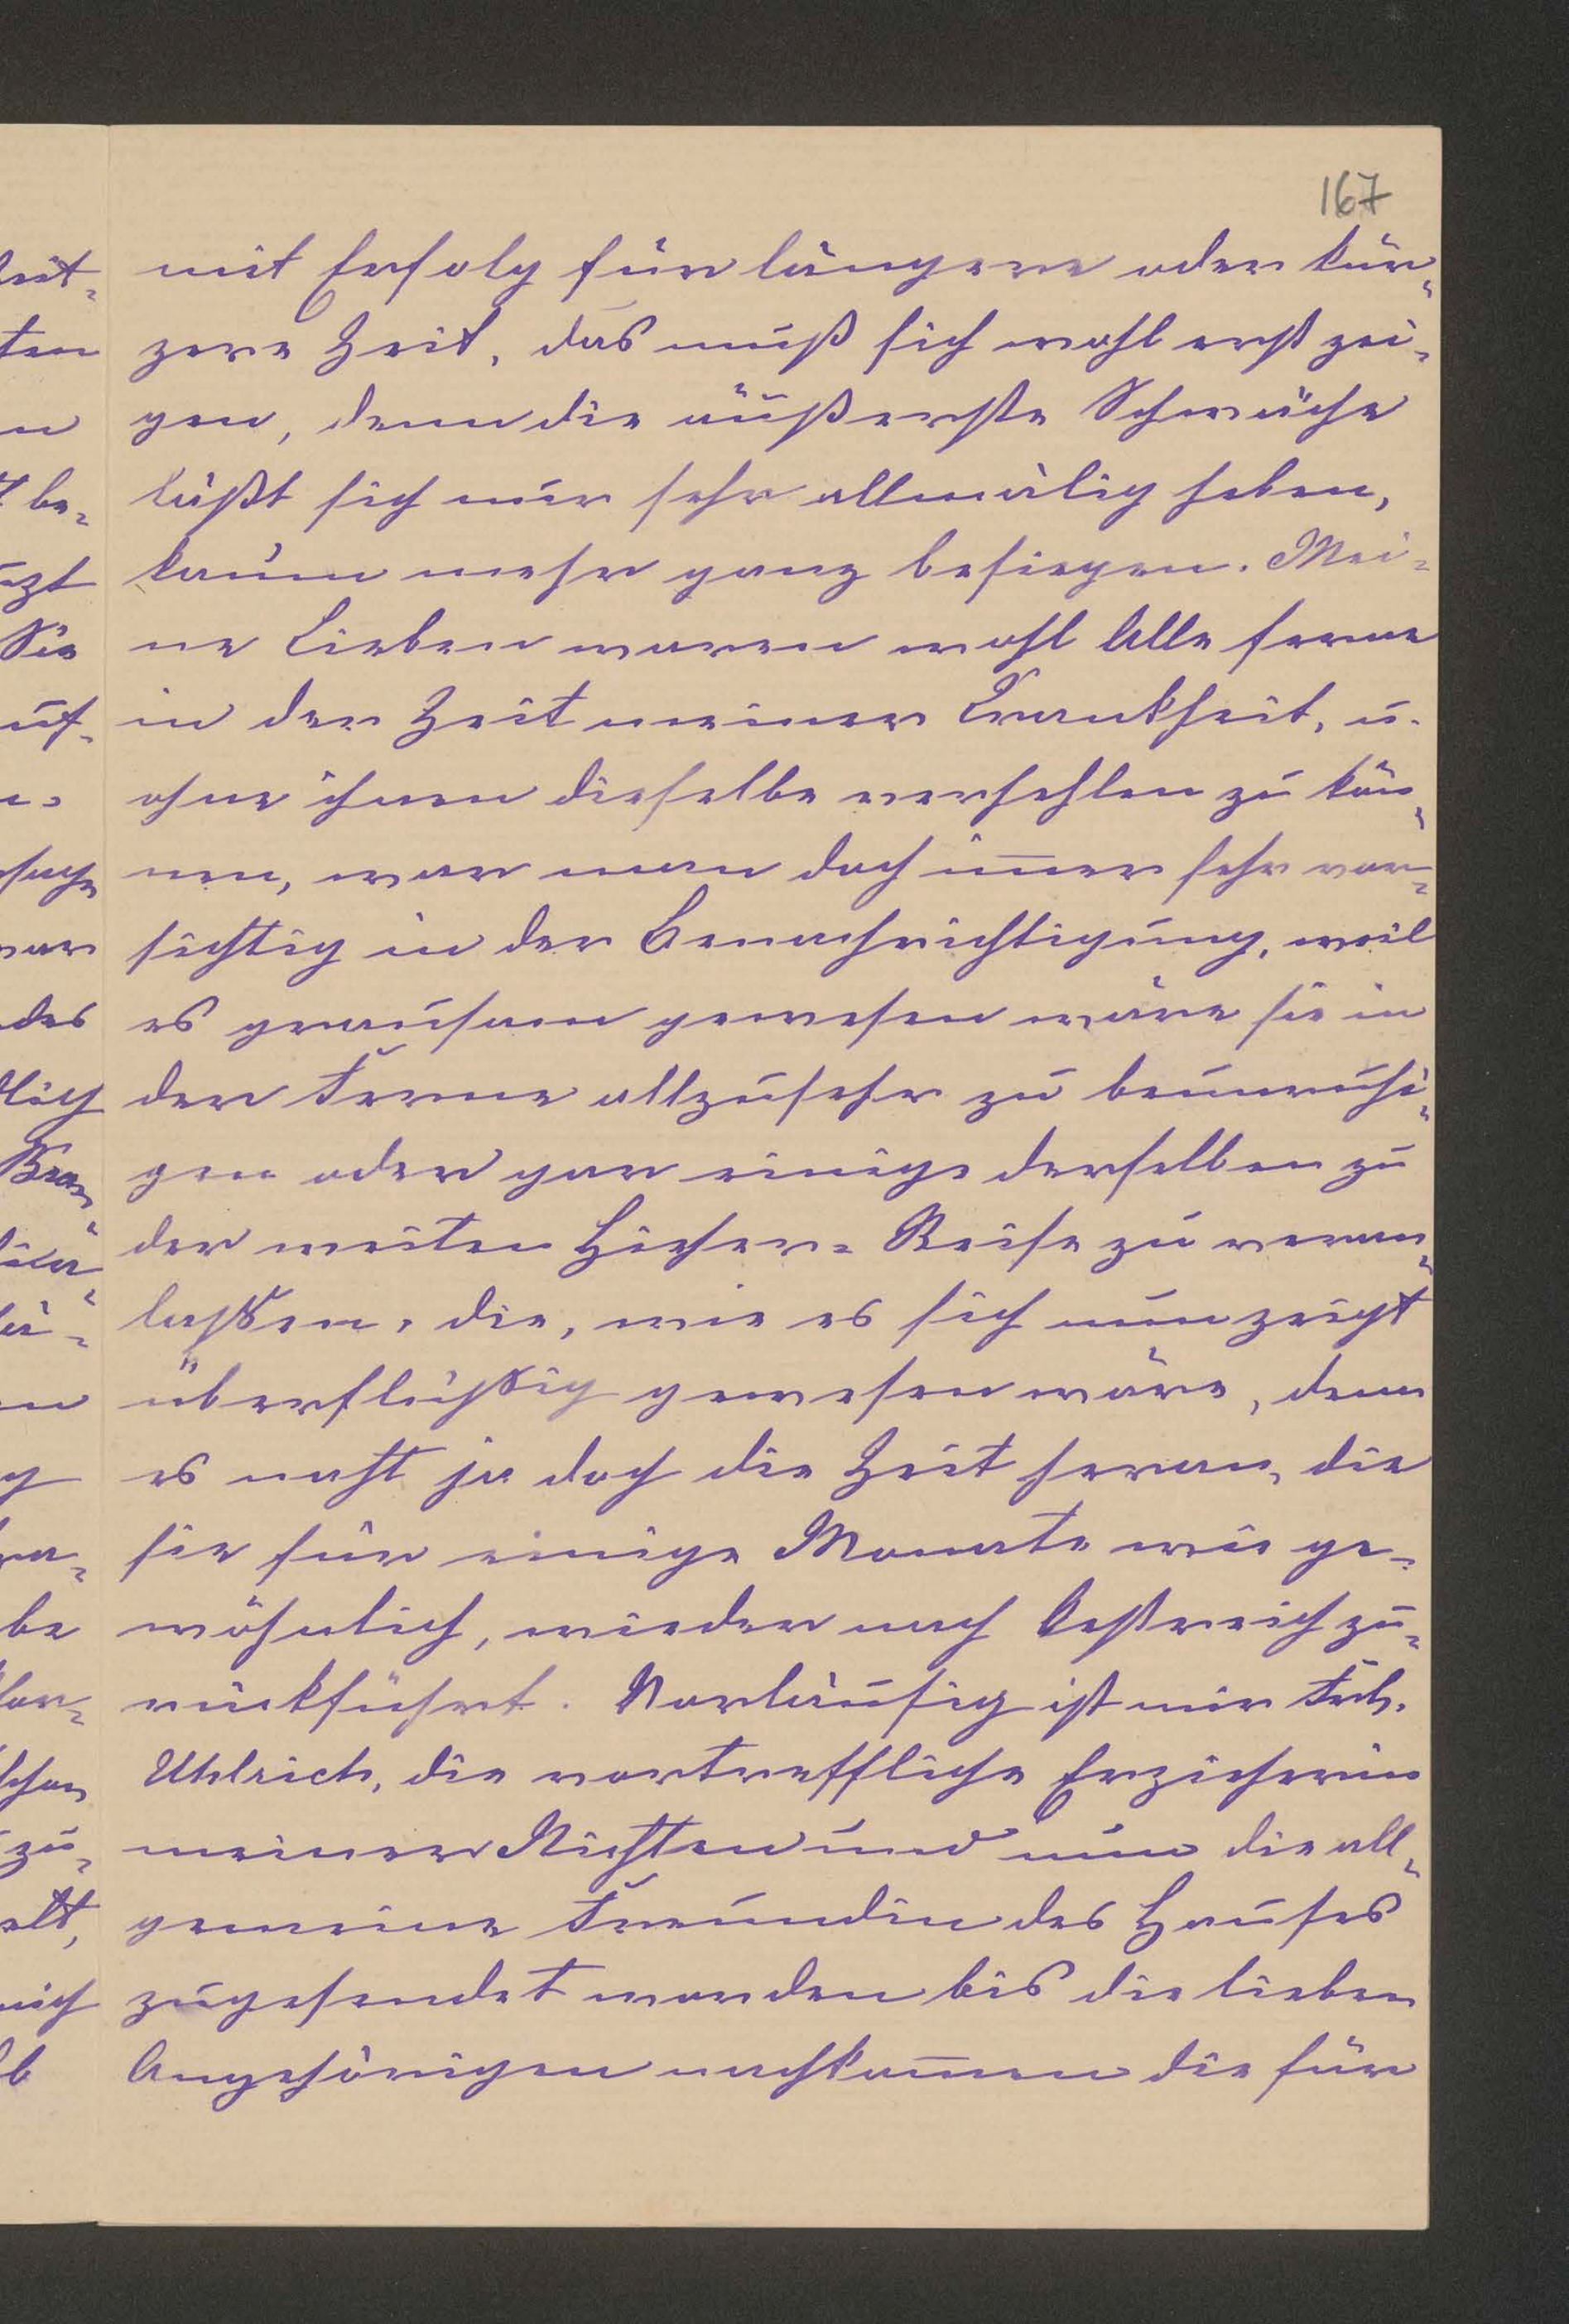 167
mit Erfolg für längere oder kür-
zere Zeit, das muß sich wohl erst zei-
gen, denn die äußerste Schwäche
läßt sich nur sehr allmälig heben,
kaum mehr ganz besiegen. Mei-
ne Lieben waren wohl Alle ferne
in der Zeit meiner Krankheit, u.
ohne ihnen dieselbe verhehlen zu kön-
nen, war man doch im̅er sehr vor-
sichtig in der Benachrichtigung, weil
es grausam gewesen wäre sie in
der Ferne allzusehr zu beunruhi-
gen oder gar einige derselben zu
der weiten Hieher-Reise zu veran-
lassen, die, wie es sich nun zeigt
überflüssig gewesen wäre, denn
es naht ja doch die Zeit heran, die
sie für einige Monate wie ge-
wöhnlich, wieder nach Oestreich zu-
rückführt. Vorläufig ist mir Frl.
Uhlrich, die vortreffliche Erzieherin
meiner Nichten und nun die all-
gemeine Freundin des Hauses
zugesendet worden bis die lieben
Angehörigen nachkom̅en die für